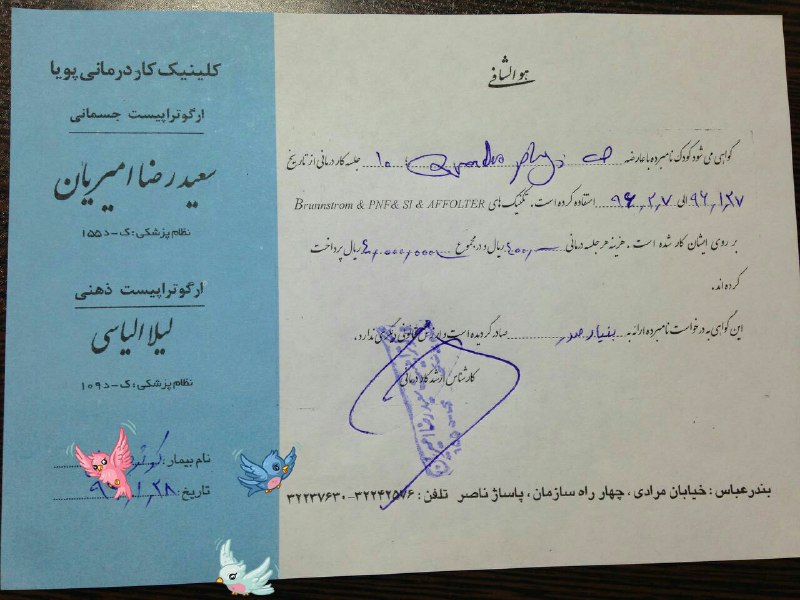 هوالشافی
کلینیک کاردرمانی پویا
ارگوتراپیست جسمانی
سعید رضا امیریان
نظام پزشکی: ک-د۱۵۵
ارگوتراپیست ذهنی
لیلا الیاسی
نظام پزشکی: ک-د۱۰۹
نام بیمار:
تاریخ: ۱٫۲۸
گواهی می شود کودک نامبرده با عارضه ۱۰ جلسه کار درمانی از تاریخ
۹۶٫۱٫۲۷ الی ۹۶٫۲٫۷ استفاده کرده است. تکنیک های Brunnstrom & PNF& SI & AFFOLTER
بر روی ایشان کار شده است. هزینه هر جلسه درمانی ریال و در مجموع ریال پرداخت
کرده اند.
این گواهی به درخواست نامبرده ارائه به صادر گردیده است و ارزش قانونی دیگری ندارد.
کارشناس ارشد کاردرمانی
بندرعباس: خیابان مرادی، چهار راه سازمان، پاساژ ناصر تلفن: ۳۲۲۴۲۵۷۶-۳۲۲۳۷۶۳۰